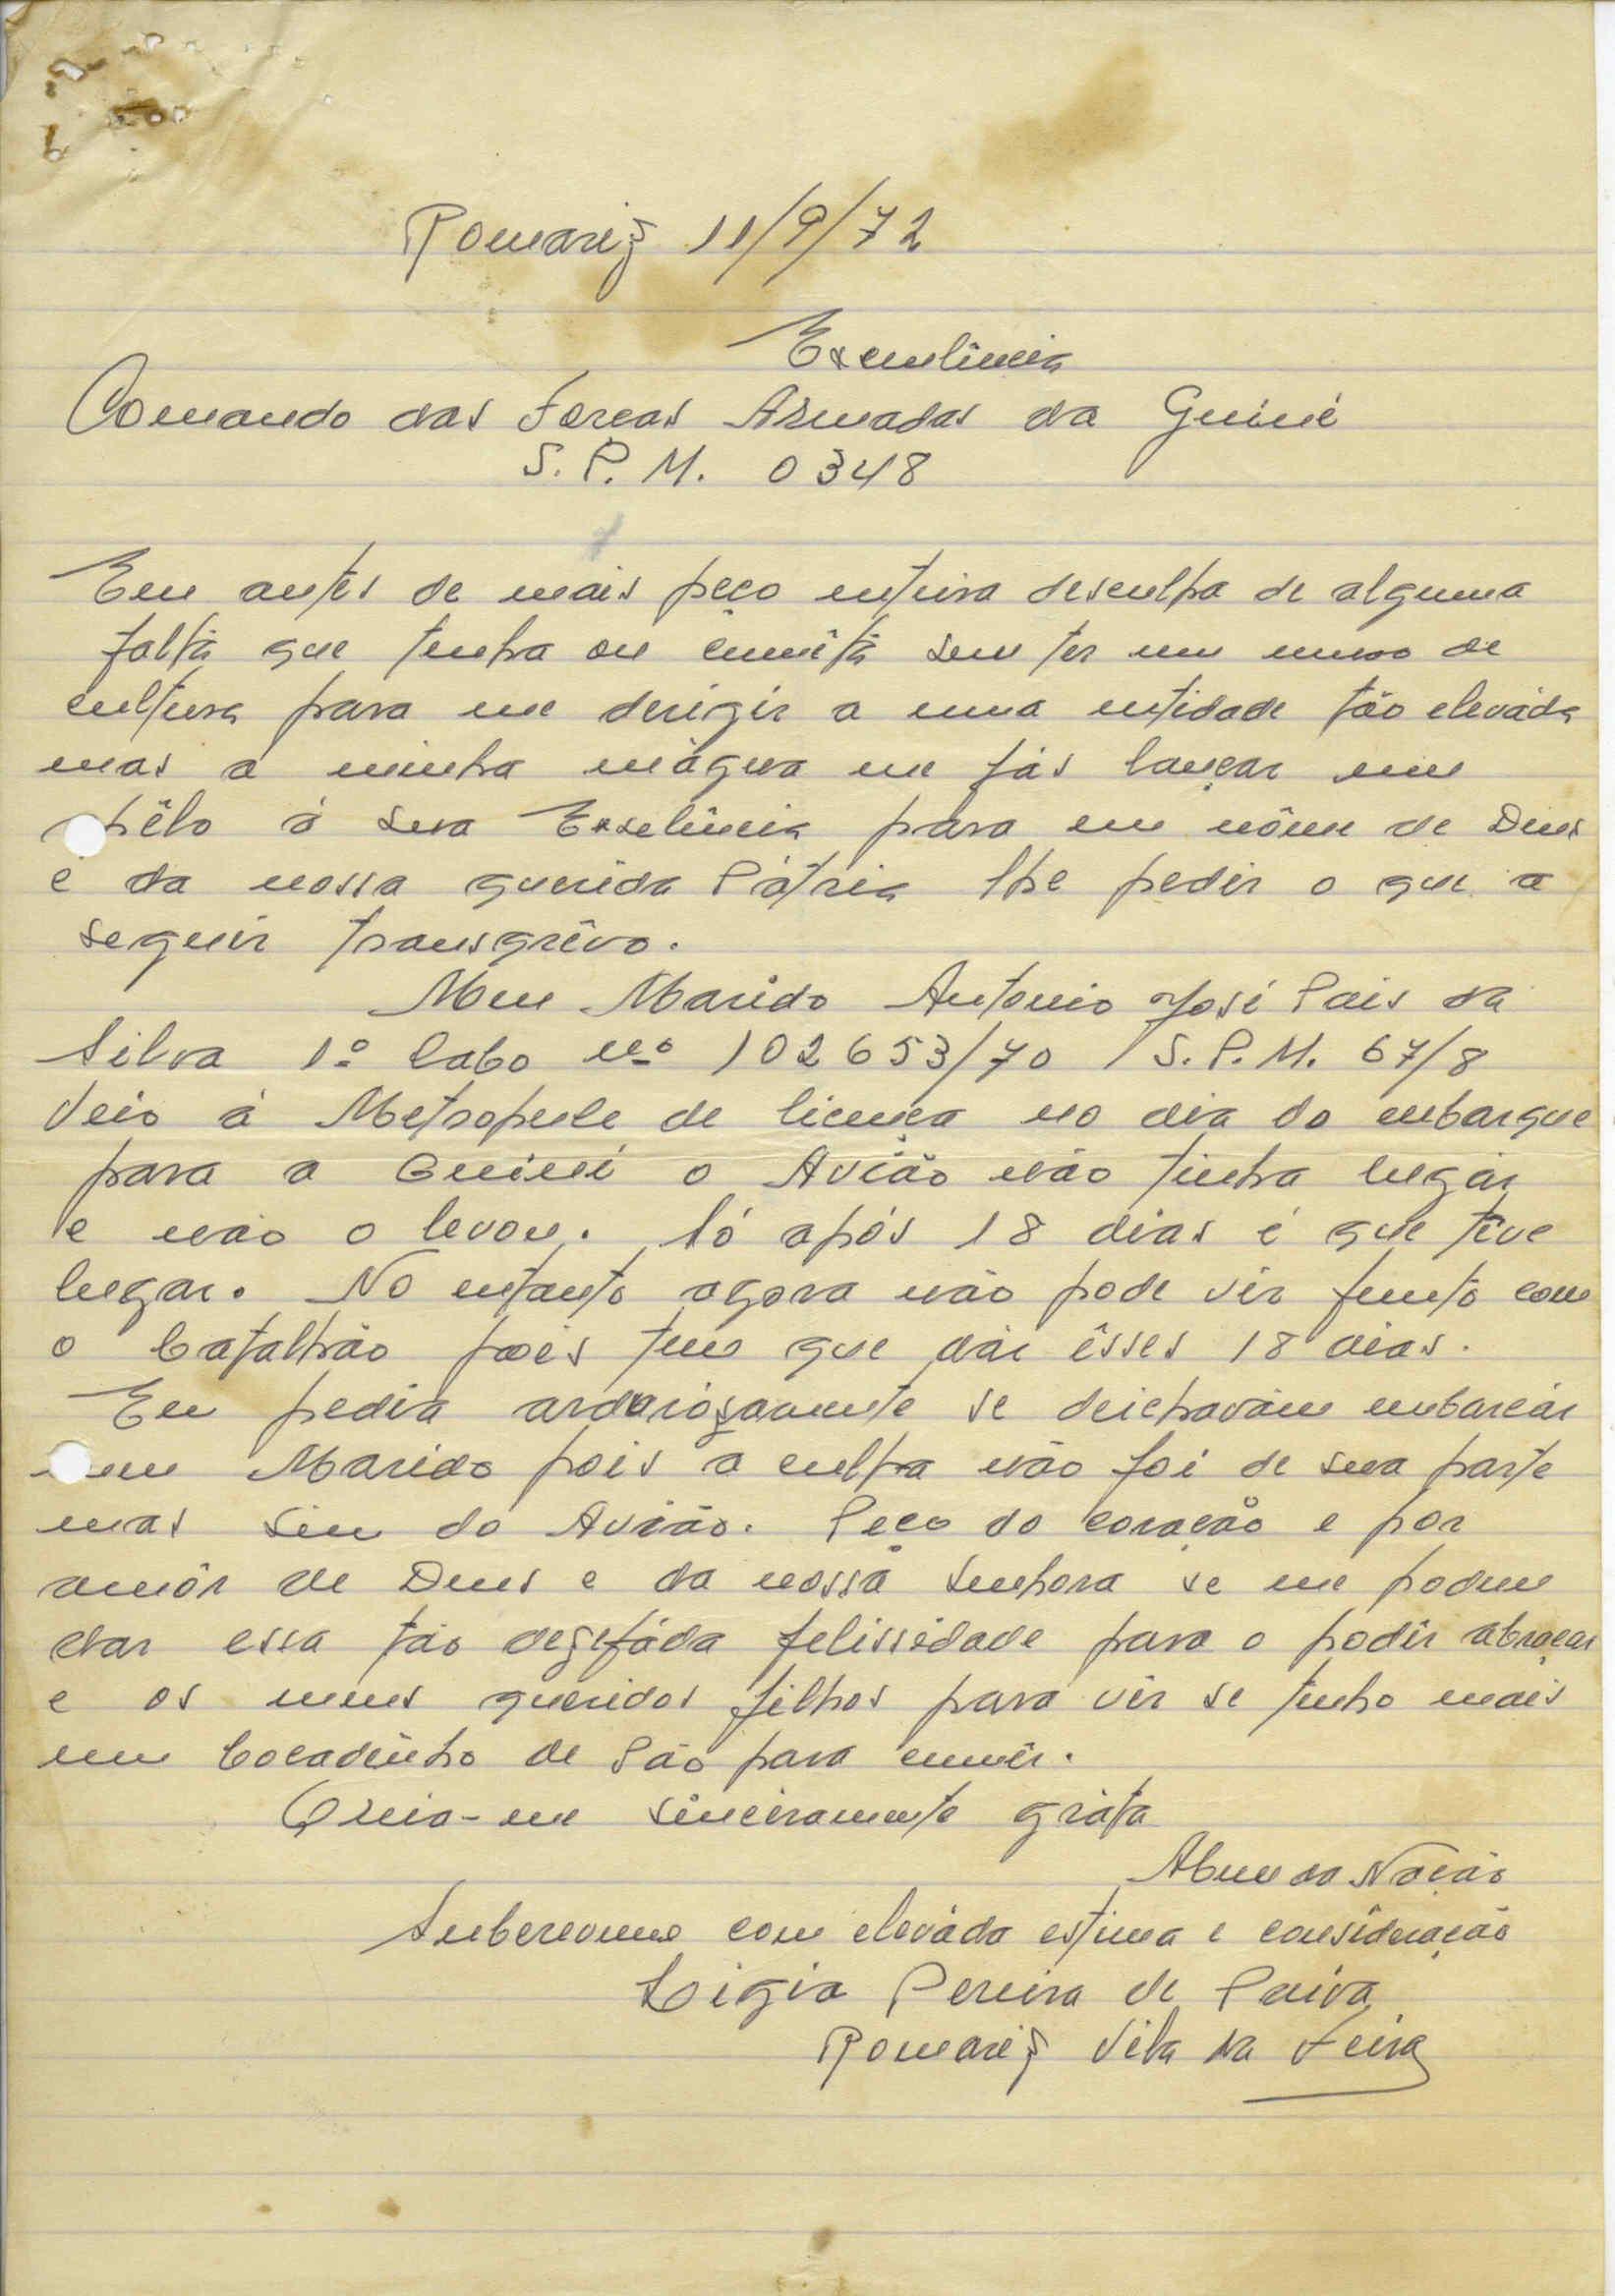 Romariz 11/9/72
Exculência
Comando das Forcas Armadas da Guiné
S. P. M. 0348
Eu antes de mais peço enteira desculpa de alguma
falta que tenha ou cumêta sem ter um curso de
cultura para me derigir a uma entidade tão eleváda
mas a minha mágua me fás lançar um
apêlo á sua Exselência para em nôme de Deus
e da nossa querida Pátria lhe pedir o que a
seguir transgrêvo.
Meu Marido Antonio José Pais da
Silva 1º Cabo nº 102653/70 / S. P. M. 67/8
Veio á Metropule de licença no dia do embarque
para a Guiné o Avião não tinha lugár
e não o levou. Só após 18 dias é que têve
lugar. No entanto agora não pode vir junto com
o batalhão pois tem que dár êsses 18 dias.
Eu pedia ardoriozamente se deichavam embarcár
meu Marido pois a culpa não foi de sua parte
mas sim do Avião. Peço do coração e por
amôr de Deus e da nossa Senhora se me podem
dar essa tão dezejáda felissidade para o podêr abraçar
e os meus queridos filhos para vêr se tenho mais
um bocadinho de Pão para cumêr.
Creia-me sinceiramente gráta
A bem da Nação
Subcrevome com eleváda estima e consideração
Ligia Pereira de Paiva
Romariz Vila da Feira